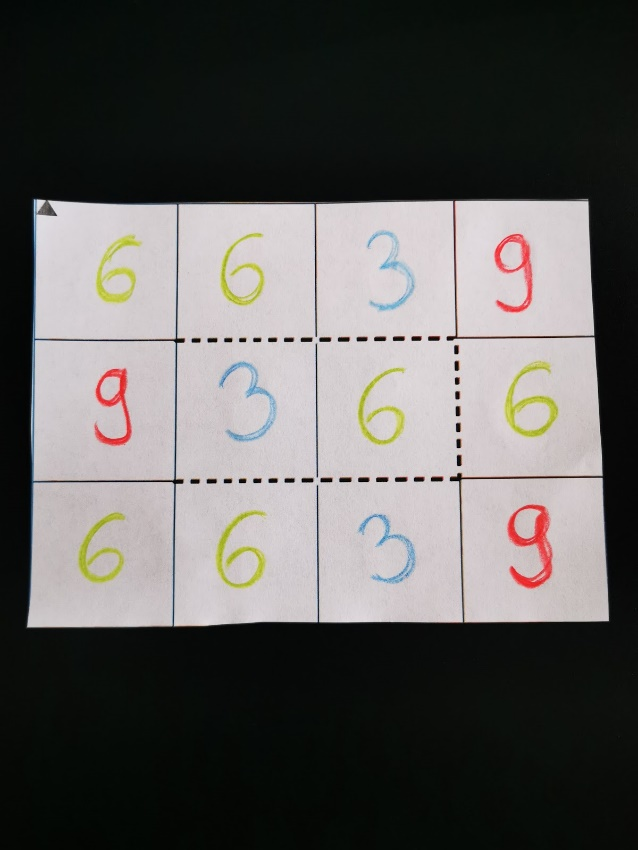 6 6 3 9
9 3 6 6
6 6 3 9